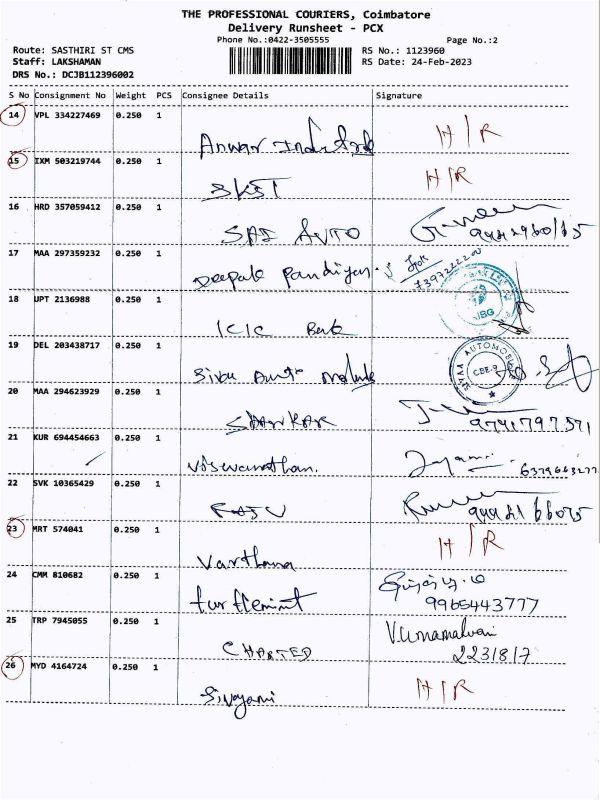 THE PROFESSIONAL COURIERS, Coimbatore
Delivery Runsheet - PCX
Phone No.:0422-3505555
Page No.:2
Route: SASTHIRI ST CMS
Staff: LAKSHAMAN
DRS No.: DCJB112396002
RS No.: 1123960
RS Date: 24-Feb-2023
S No Consignment No Weight PCS Consignee Details Signature
14 VPL 334227469 0.250 1
H/R
Anwar
15 IXM 503219744 0.250 1
H/R
SKST
16 HRD 357059412 0.250 1
SAI AUTO
17 MAA 297359232 0.250 1
Deepak Pandiyan.S
18 UPT 2136988 0.250 1
ICIC Bank
19 DEL 203438717 0.250 1
SIYAM AUTOMOBILES
CBE-9
Siva Auto
20 MAA 294623929 0.250 1
9791797571
21 KUR 694454663 0.250 1
Viswanathan.
22 SVK 10365429 0.250 1
RAJU
23 MRT 574041 0.250 1
H/R
Varthana
24 CMM 810682 0.250 1
9965443777
25 TRP 7945055 0.250 1
V.Umamalvari
CHARTED
2231817
26 MYD 4164724 0.250 1
H/R